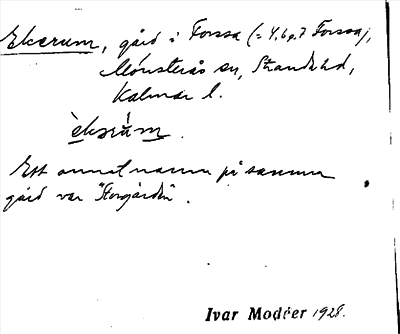 Ekerum, gård i Forssa (= 4, 6 o. 7 Forssa),
Mönsterås sn, Stranda hd,
Kalmar l.
èkərúm.
Ett annat namn på samma
gård var "Storgården".
Ivar Modéer 1928.